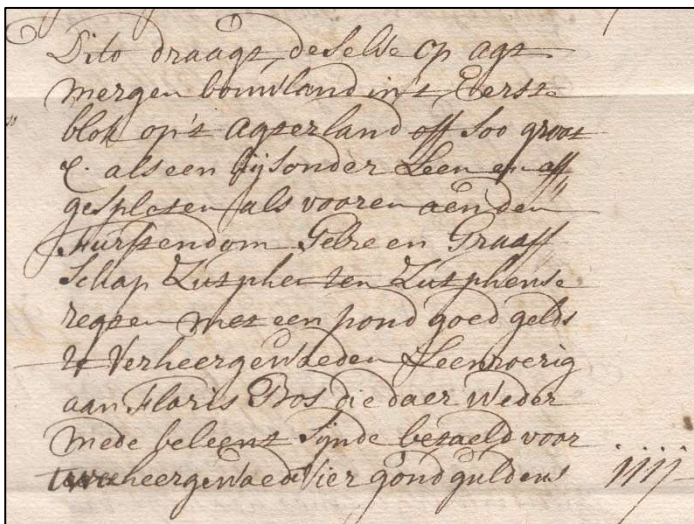 Dito draagt deselve op agt
mergen bouwland in't Eerste
blok op't agterland off soo groot
&. als een bijsonder Leen en aff
gespleten als vooren aen den
Furstendom Gelre en Graaff
Schap Zutphen ten Zutphense
regten met een pond goed gelds
te Verheergewaeden Leenroerig
aan Floris Bos die daer weder
mede beleent Sijnde betaeld voor
heergewaed Vier goud guldens iiij